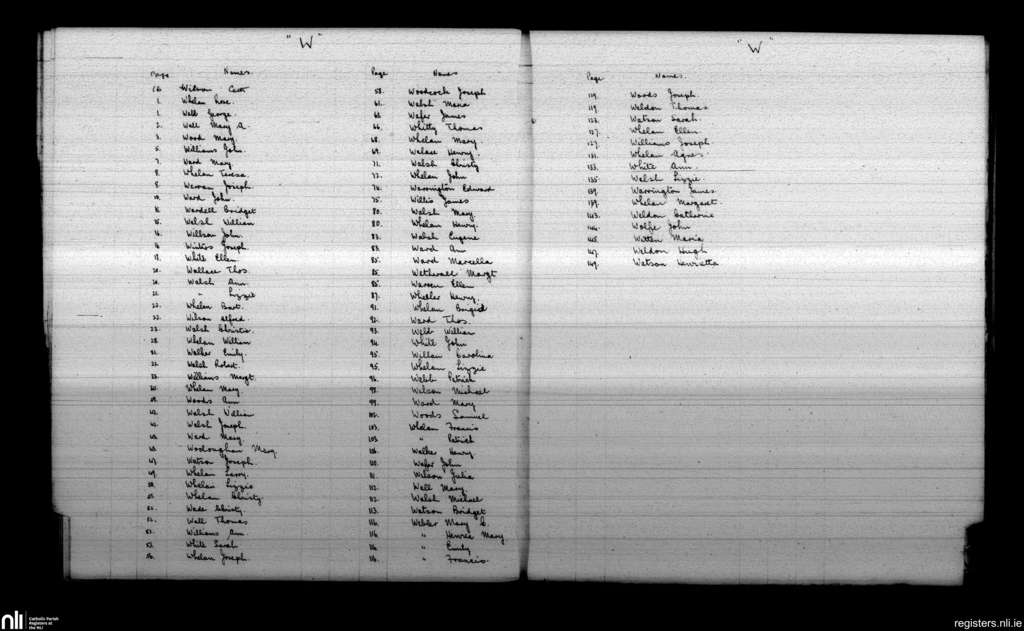 "W"
Page Names.
Wilson Cath
1. Whelan Rose.
1. Wall George.
2. Wall Mary A.
3. Wood Mary
5. Williams John.
7. Ward Mary.
8. Whelan Teresa.
8. Warren Joseph.
10. Ward John.
Wardell Bridget
Walsh William
Willson John.
Winters Joseph.
White Ellen.
20. Wallace Thos.
20. Walsh Ann.
21. " Lizzie
22. Whelan Bart.
22. Wilson Alfred.
23. Walsh Christie.
28. Whelan William
Walker Emily.
Walsh Robert.
Williams Margt.
Whelan Mary.
Woods Ann
Walsh William
Walsh Joseph.
Ward Mary.
Mary
47. Watson Joseph.
49. Whelan Larry.
Whelan Lizzie
Whelan Christy
Wade Christy.
Wall Thomas
Williams Ann
White Sarah
Whelan Joseph.
Page Names
58. Woodcock Joseph
61. Walsh Maria
Wafer James
66. Whitty Thomas
68. Whelan Mary
69. Wallace Henry.
71. Walsh Christy
72. Whelan John
74. Warrington Edward
75. Willis James
80. Walsh Mary
80. Whelan Henry.
83. Walsh Eugene
83. Ward Ann
85. Ward Marcella
85. Wetherall Margt
85. Warren Ellen
87. Whelan Henry.
91. Whelan Brigid
92. Ward Thos.
93. Weld William
94. White John
95. Willan Carolina
95. Whelan Lizzie
96. Walsh Patrick
Wilson Michael
99. Ward Mary
Woods Samuel
103. Whelan Francis
103. " Patrick
Walker Henry.
110. Wafer John
111. Wilson Julia
112. Wall Mary
112. Walsh Michael
113. Watson Bridget
116. Webler Mary C.
116. " Mary
116. " Emily
116. " Francis.
"W"
Page Names.
119. Woods Joseph.
119. Weldon Thomas
123. Watson Sarah.
127. Whelan Ellen.
129. Williams Joseph.
131. Whelan Agnes.
133. White Ann.
135. Walsh Lizzie.
139. Warrington James.
139. Whelan Margaret
143. Weldon Catherine
144. Wolfe John
145. Witten Maria
147. Weldon Hugh
149. Watson Henrietta
nli Catholic Parish
Registers at
the NLI
registers.nli.ie